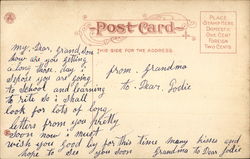 Post Card
THIS SIDE FOR THE ADDRESS.
PLACE
STAMP HERE
DOMESTIC
ONE CENT
FOREIGN
TWO CENTS
My Dear Grand Son
how are you getting
a long these days. I
Spose you are going
to School and learning
to rite so i shall
look for lots of long
letters from you pretty
Soon now i must
wish you good by for this time many kisses and
hope to See you Soon Grandma to Dear Jodie
from Grandma
to Dear Jodie